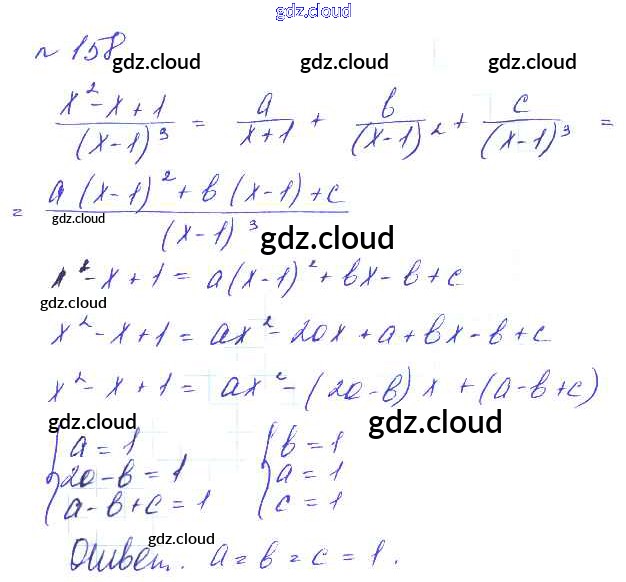 gdz.cloud
№ 158
gdz.cloud gdz.cloud
(x² - x + 1)/(x-1)³ = a/(x+1) + b/(x-1)² + c/(x-1)³ =
= (a(x-1)² + b(x-1) + c)/(x-1)³
gdz.cloud
gdz.cloud
x² - x + 1 = a(x-1)² + bx - b + c
gdz.cloud
x² - x + 1 = ax² - 2ax + a + bx - b + c
x² - x + 1 = ax² - (2a-b)x + (a-b+c)
gdz.cloud gdz.cloud
{a = 1 {b = 1
2a - b = 1 a = 1
a - b + c = 1 c = 1
gdz.cloud gdz.cloud
Ответ. a = b = c = 1.
gdz.cloud